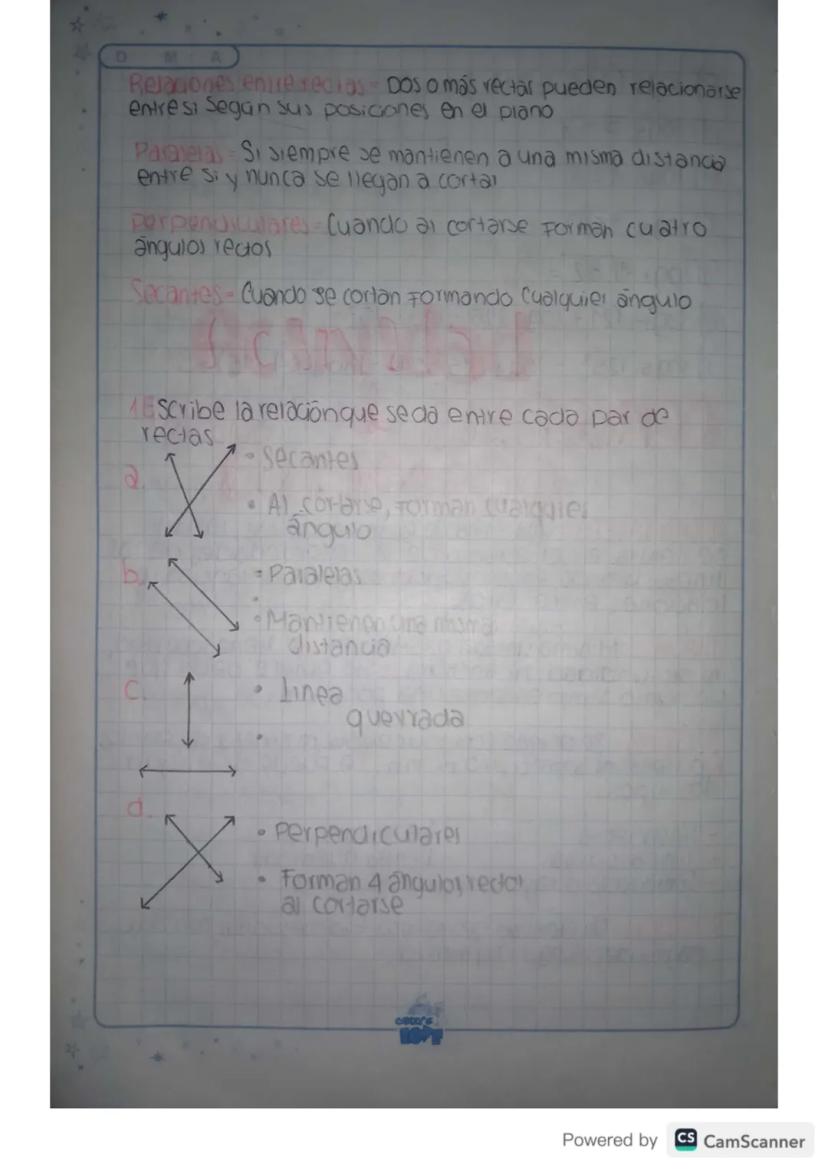 D M A
Relaciones entre rectas = Dos o más rectas pueden relacionarse
entre si según sus posiciones en el plano
Paralelas = Si siempre se mantienen a una misma distancia
entre si y nunca se llegan a cortar
perpendiculares = Cuando al cortarse Forman cuatro
ángulos rectos
Secantes = Cuando se cortan Formando Cualquier ángulo
1 Escribe la relación que se da entre cada par de
rectas
a.
• Secantes
• Al cortarse, Forman cualquier
ángulo
b.
• Paralelas
• Mantienen una misma
distancia
c.
• Linea
quevrada
•
d.
• Perpendiculares
• Forman 4 ángulos rectos
al cortarse
Powered by CS CamScanner